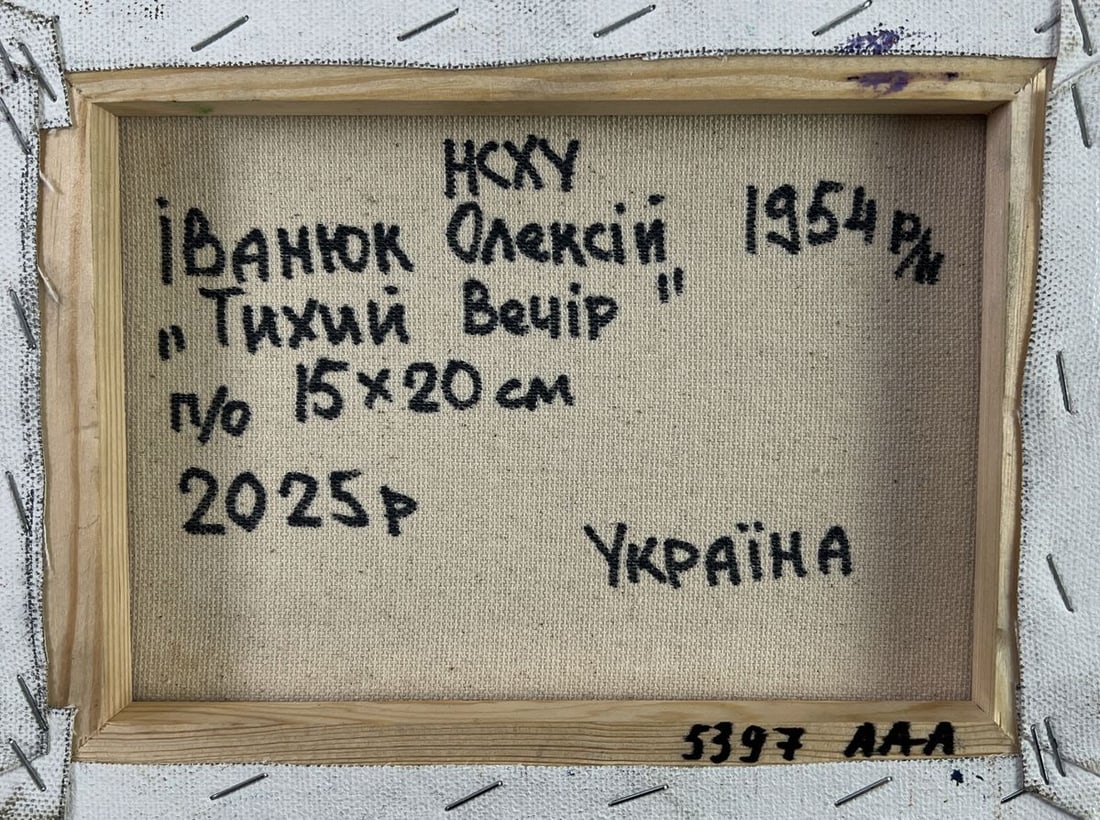 НСХУ
Іванюк Олексій 1954 р/н
„Тихий Вечір"
п/о 15×20 см
2025р
Україна
5397 АА-А